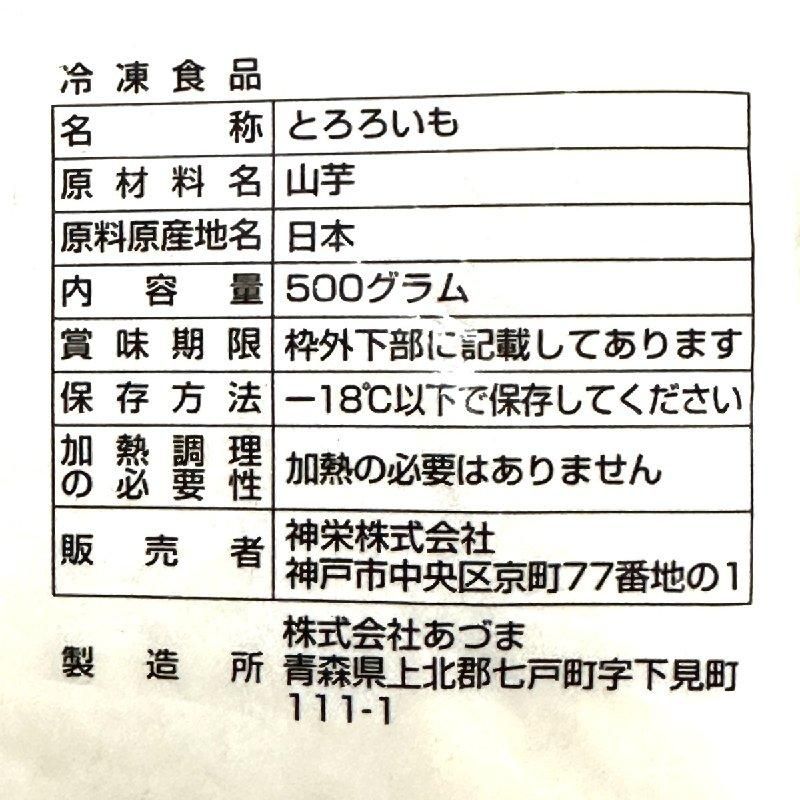 冷凍食品
名称 とろろいも
原材料名 山芋
原料原産地名 日本
内容量 500グラム
賞味期限 枠外下部に記載してあります
保存方法 −18℃以下で保存してください
加熱調理の必要性 加熱の必要はありません
販売者 神栄株式会社
神戸市中央区京町77番地の1
製造所 株式会社あづま
青森県上北郡七戸町字下見町
111-1